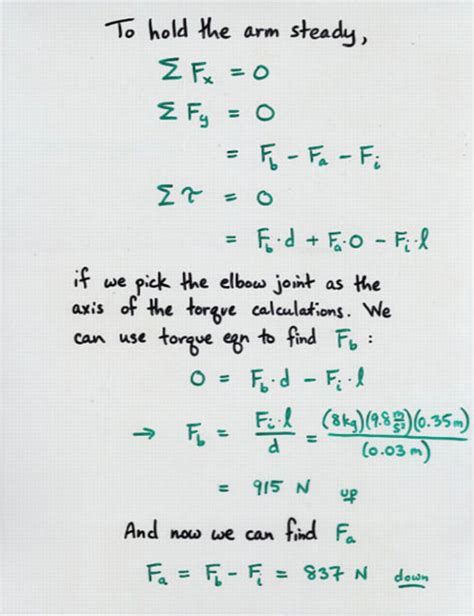 To hold the arm steady,
Σ Fx = 0
Σ Fy = 0
= Fb - Fa - Fi
Σ τ = 0
= Fb·d + Fa·0 - Fi·l
if we pick the elbow joint as the
axis of the torque calculations. We
can use torque eqn to find Fb :
0 = Fb·d - Fi·l
→ Fb = Fi·l / d = (8kg)(9.8 m/s²)(0.35m) / (0.03m)
= 915 N up
And now we can find Fa
Fa = Fb - Fi = 837 N down